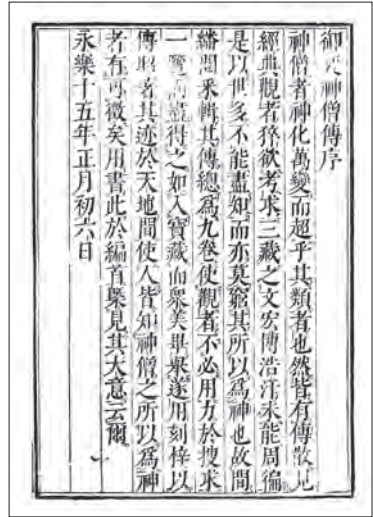 御製神僧傳序
神僧者神化萬變而超乎其類者也然皆有傳散見
經典觀者猝欲考求三藏之文宏博浩汗未能周徧
是以世多不能盡知而亦莫窮其所以爲神也故間
繙閱采輯其傳總爲九卷使觀者不必用力於搜求
一覽而盡得之如入寶藏而衆美畢舉遂用刻梓以
傳昭著其迹於天地間使人皆知神僧之所以爲神
者有可徵矣用書此於編首槩見其大意云爾
永樂十五年正月初六日